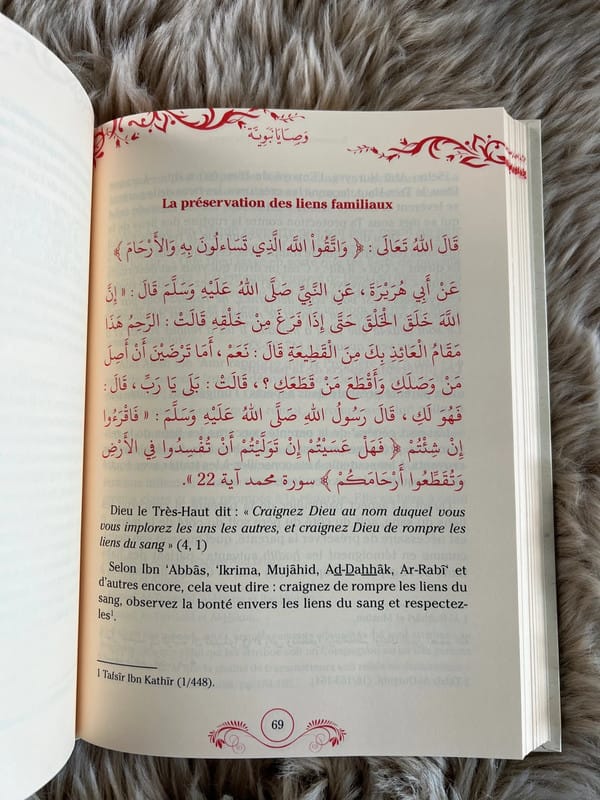 وَصَايَا نَبَوِيَّة
La préservation des liens familiaux
قَالَ اللهُ تَعَالَى : ﴿ وَاتَّقُواْ اللَّهَ الَّذِي تَسَاءلُونَ بِهِ وَالأَرْحَامَ ﴾
عَنْ أَبِي هُرَيْرَةَ ، عَنِ النَّبِيِّ صَلَّى اللهُ عَلَيْهِ وَسَلَّمَ قَالَ : « إِنَّ
اللَّهَ خَلَقَ الْخَلْقَ حَتَّى إِذَا فَرَغَ مِنْ خَلْقِهِ قَالَتْ : الرَّحِمُ هَذَا
مَقَامُ الْعَائِذِ بِكَ مِنَ الْقَطِيعَةِ قَالَ : نَعَمْ ، أَمَا تَرْضَيْنَ أَنْ أَصِلَ
مَنْ وَصَلَكِ وَأَقْطَعَ مَنْ قَطَعَكِ ؟ ، قَالَتْ : بَلَى يَا رَبِّ ، قَالَ :
فَهُوَ لَكِ ، قَالَ رَسُولُ اللهِ صَلَّى اللهُ عَلَيْهِ وَسَلَّمَ : « فَاقْرَءُوا
إِنْ شِئْتُمْ ﴿ فَهَلْ عَسَيْتُمْ إِنْ تَوَلَّيْتُمْ أَنْ تُفْسِدُوا فِي الأَرْضِ
وَتُقَطِّعُوا أَرْحَامَكُمْ ﴾ سورة محمد آية 22 ».
Dieu le Très-Haut dit : « Craignez Dieu au nom duquel vous
vous implorez les uns les autres, et craignez Dieu de rompre les
liens du sang » (4, 1)
Selon Ibn ‘Abbâs, ‘Ikrima, Mujâhid, Ad-Dahhâk, Ar-Rabî‘ et
d'autres encore, cela veut dire : craignez de rompre les liens du
sang, observez la bonté envers les liens du sang et respectez-
les¹.
1 Tafsîr Ibn Kathîr (1/448).
69